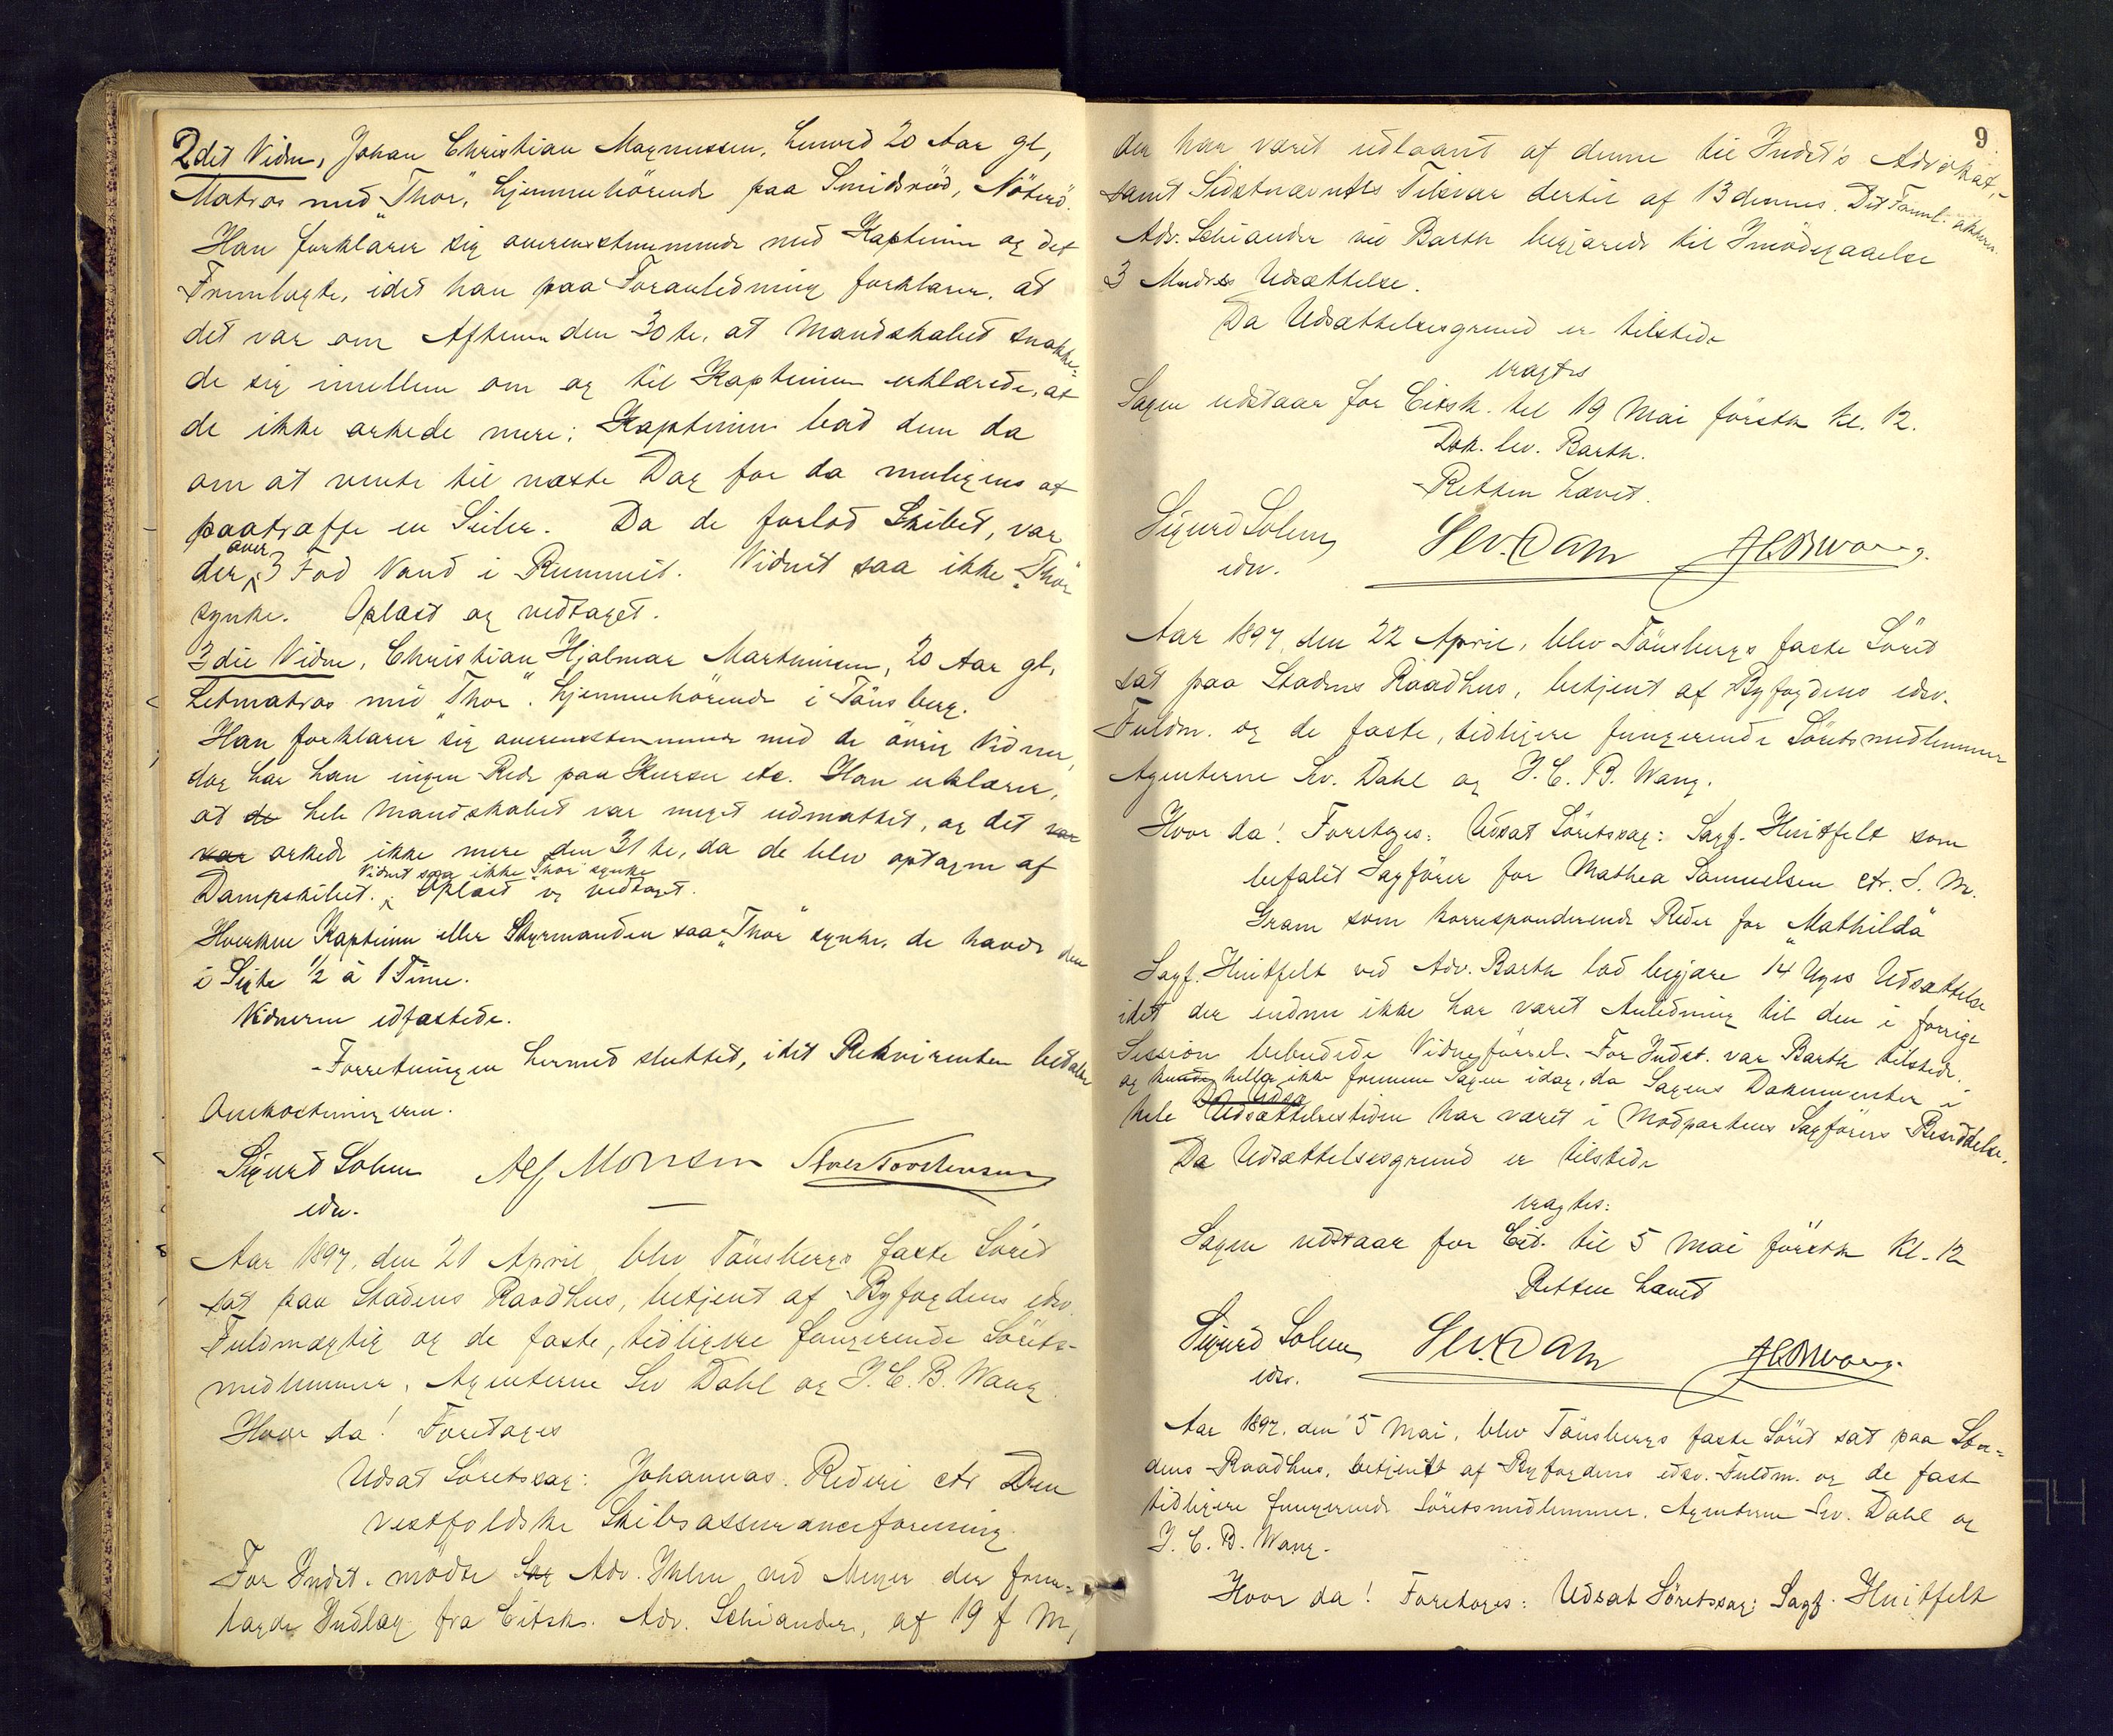 2det Vidne, Johan Christian Magnussen, henved 20 Aar gl,
Matros med "Thor", hjemmehörende paa Smidsröd, Nöterö.
Han forklarer sig overensstemmende med Kapteinen og det
Fremlagte, idet han paa Foranledning forklarer, at
det var om Aftenen den 30te, at Mandskabet snakke-
de sig imellem om og til Kapteinen erklærede, at
de ikke orkede mere; Kapteinen bad dem da
om at vente til næste Dag for da muligens at
paatræffe en Seiler. Da de forlod Skibet, var
der over 3 Fod Vand i Rummet. Vidnet saa ikke "Thor"
synke. Oplæst og vedtaget.
3die Vidne, Christian Hjalmar Martinisen, 20 Aar gl,
Letmatros med "Thor". hjemmehörende i Tönsberg.
Han forklarer sig overensstemmende med de övrige Vidner,
dog har han ingen Rede paa Kurser etc. Han erklærer,
at de hele Mandskabet var meget udmattet, og det var
var orkede ikke mere den 31te, da de blev optagen af
Vidnet saa ikke "Thor" synke
Dampskibet. Oplæst og vedtaget.
Hverken Kapteinen eller Styrmanden saa "Thor" synke, de havde den
i Sigte 1/2 à 1 Time.
Vidnerne edfæstede.
- Forretningen hermed sluttet, idet Rekvirenten betaler
Omkostningerne.
Sigurd Solem Alf Monsen Thor Torstensen
edsv.
Aar 1897, den 21 April blev Tönsbergs faste Söret
sat paa Stadens Raadhus, betjent af Byfogdens edsv.
Fuldmægtig og de faste, tidligere fungerende Sörets-
medlemmer, Agenterne Sev Dahl og J. C. B. Wang.
Hvor da! Foretages
Udsat Söretssag: Johannas Rederi ctr Den
vestfoldske Skibsassuranceforening.
For Indst. mödte Sag Adv. Ihlen ved Meyer der frem-
lagde Indlæg fra Citsk. Adv. Schiander, af 19 f M,
9
der har været udlaant af denne til Indst's Advokat,-
samt Sidstnævntes Tilsvar dertil af 13 dennes. Det Fremlagte
Adv. Schiander ved Barth begjærede til Imödegaaelse
3 Mndrs Udsættelse.
Da Udsættelsesgrund er tilstede
eragtes
Sagen udstaar for Citsk. til 19 Mai förstk kl. 12.
Dok. lev. Barth.
- Retten hævet.
Sigurd Solem Sev. Dahl JCBWang.
edsv.
Aar 1897, den 22 April, blev Tönsbergs faste Söret
sat paa Stadens Raadhus, betjent af Byfogdens edsv.
Fuldm. og de faste, tidligere fungerende Söretsmedlemmer
Agenterne Sev. Dahl og J. C. B. Wang.
Hvor da! Foretoges: Udsat Söretssag: Sagf. Huitfelt som
befalet Sagförer for Mathea Samuelsen ctr. S. M.
Gram som korresponderende Reder for "Mathilda"
Sagf. Huitfelt ved Adv. Barth lod begjære 14 Dages Udsættelse
idet der endnu ikke har været Anledning til den i forrige
Session bebudede Vidneförsel. For Indst. var Barth tilstede.
og kunde heller ikke fremme Sagen idag, da Sagens Dokumenter i
hele Udsættelsestiden har været i Modpartens Sagförers Besiddelse.
Da Udsættelsesgrund er tilstede
eragtes:
Sagen udstaar for Cit. til 5 Mai förstk Kl. 12
Retten hævet
Sigurd Solem Sev. Dahl JCBWang.
edsv.
Aar 1897, den 5 Mai, blev Tönsbergs faste Söret sat paa Sta-
dens Raadhus, betjent af Byfogdens edsv. Fuldm. og de faste
tidligere fungerende Söretsmedlemmer, Agenterne Sev. Dahl og
J. C. B. Wang.
Hvor da! Foretoges: Udsat Söretssag: Sagf. Huitfelt